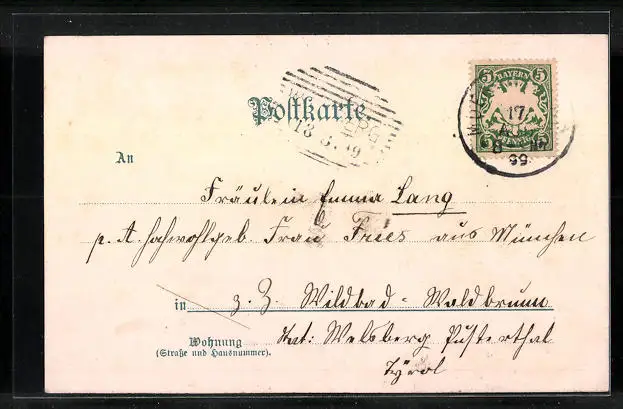 Postkarte.
5 BAYERN 5
PFENNIG
17
AUG
99
18 8 99
An
Fräulein Emma Lang
p. A. hochwohlgeb Frau Fries aus München
in z. Z. Wildbad-Waldbrunn
Stat: Welsberg Pusterthal
Tyrol
Wohnung
(Straße und Hausnummer).